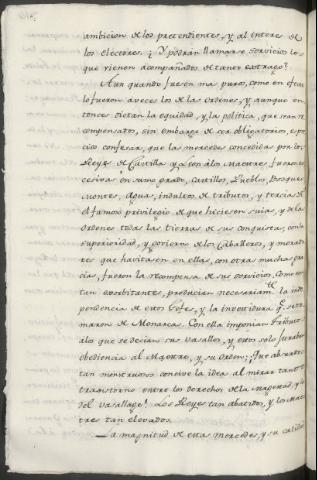 ambicion de los pretendientes, y al interes de
los electores. ¿Y podrán llamarse servicios los
que vienen acompañados de tanto estrago?
Aun quando fuesen mas puros, como en efecto
lo fueron aveces los de las Ordenes, y aunque en
tonces dictan la equidad, y la politica, que sean re
compensados, sin embargo de ser obligatorios, es pre
ciso confesar, que las mercedes concedidas por los
Reyes de Castilla y Leon álos Maestres, fueron ex
cesivas en sumo grado. Castillos, Pueblos, Bosques
montes, Aguas, indultos de tributos, y tercias de
el famoso privilegio de que hiciesen suias, y de las
Ordenes todas las tierras de sus conquistas, con la
superioridad, y govierno de los Caballeros, y morado
res que havitasen en ellas, con otras muchas gra
cias, fueron la recompensa de sus servicios. Dones
tan exorbitantes, producian necesariam.te la inde
pendencia de estos Gefes, y la investidura q.e
maron de Monarcas. Con ella imponian tributos
álos que se decian sus vasallos, y estos solo juraban
obediencia al Maestre, y su orden. ¡Que abortos
tan monstruosos concive la idea al mirar tanto
transtorno entre los derechos de la magestad, y los
del vasallage! Los Reyes tan abatidos, y los Maes
tres tan elevados.
La magnitud de estas mercedes, y su calidad